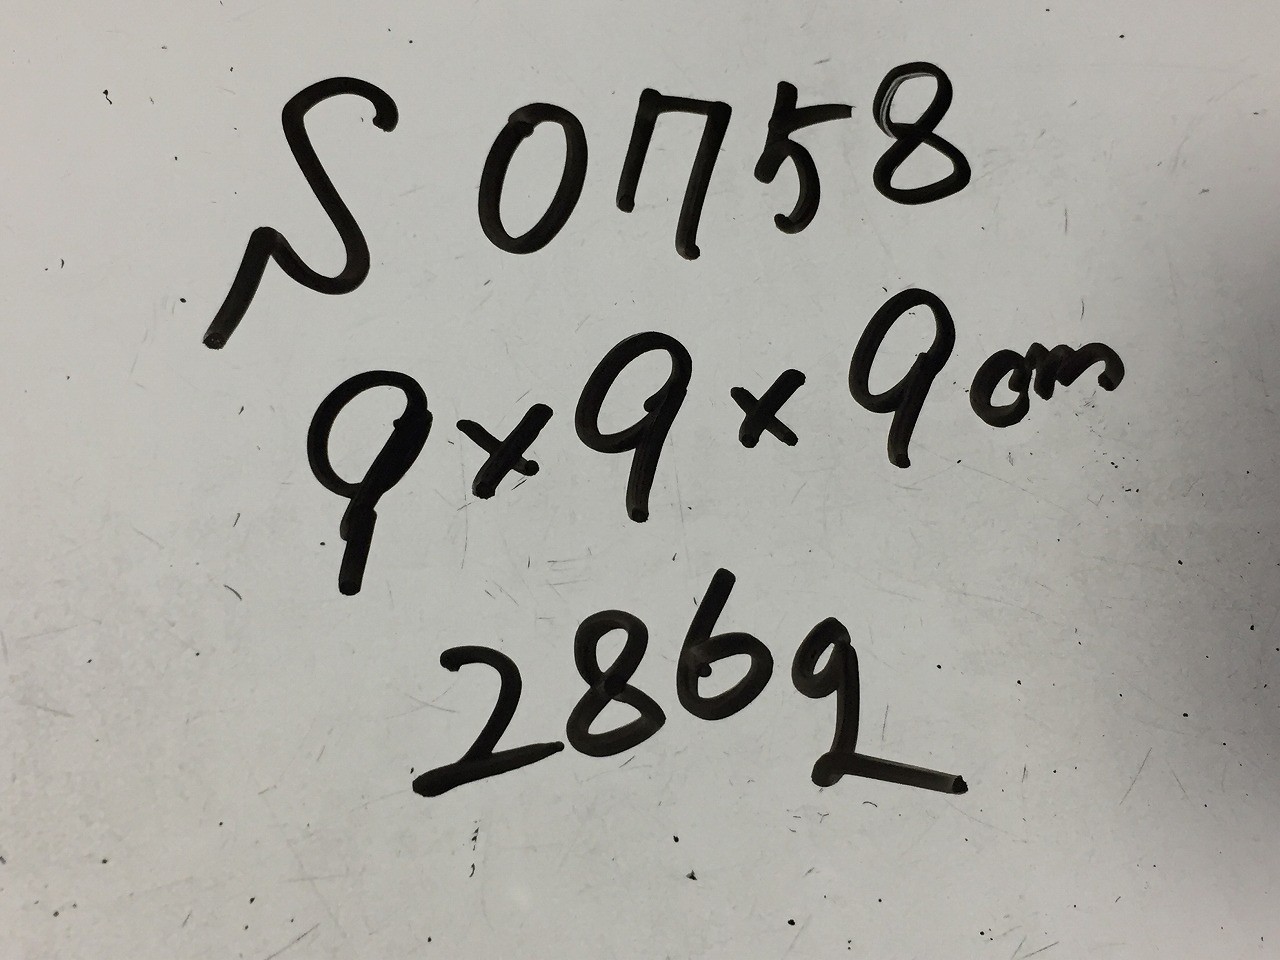 S 0758
9x9x9cm
286g